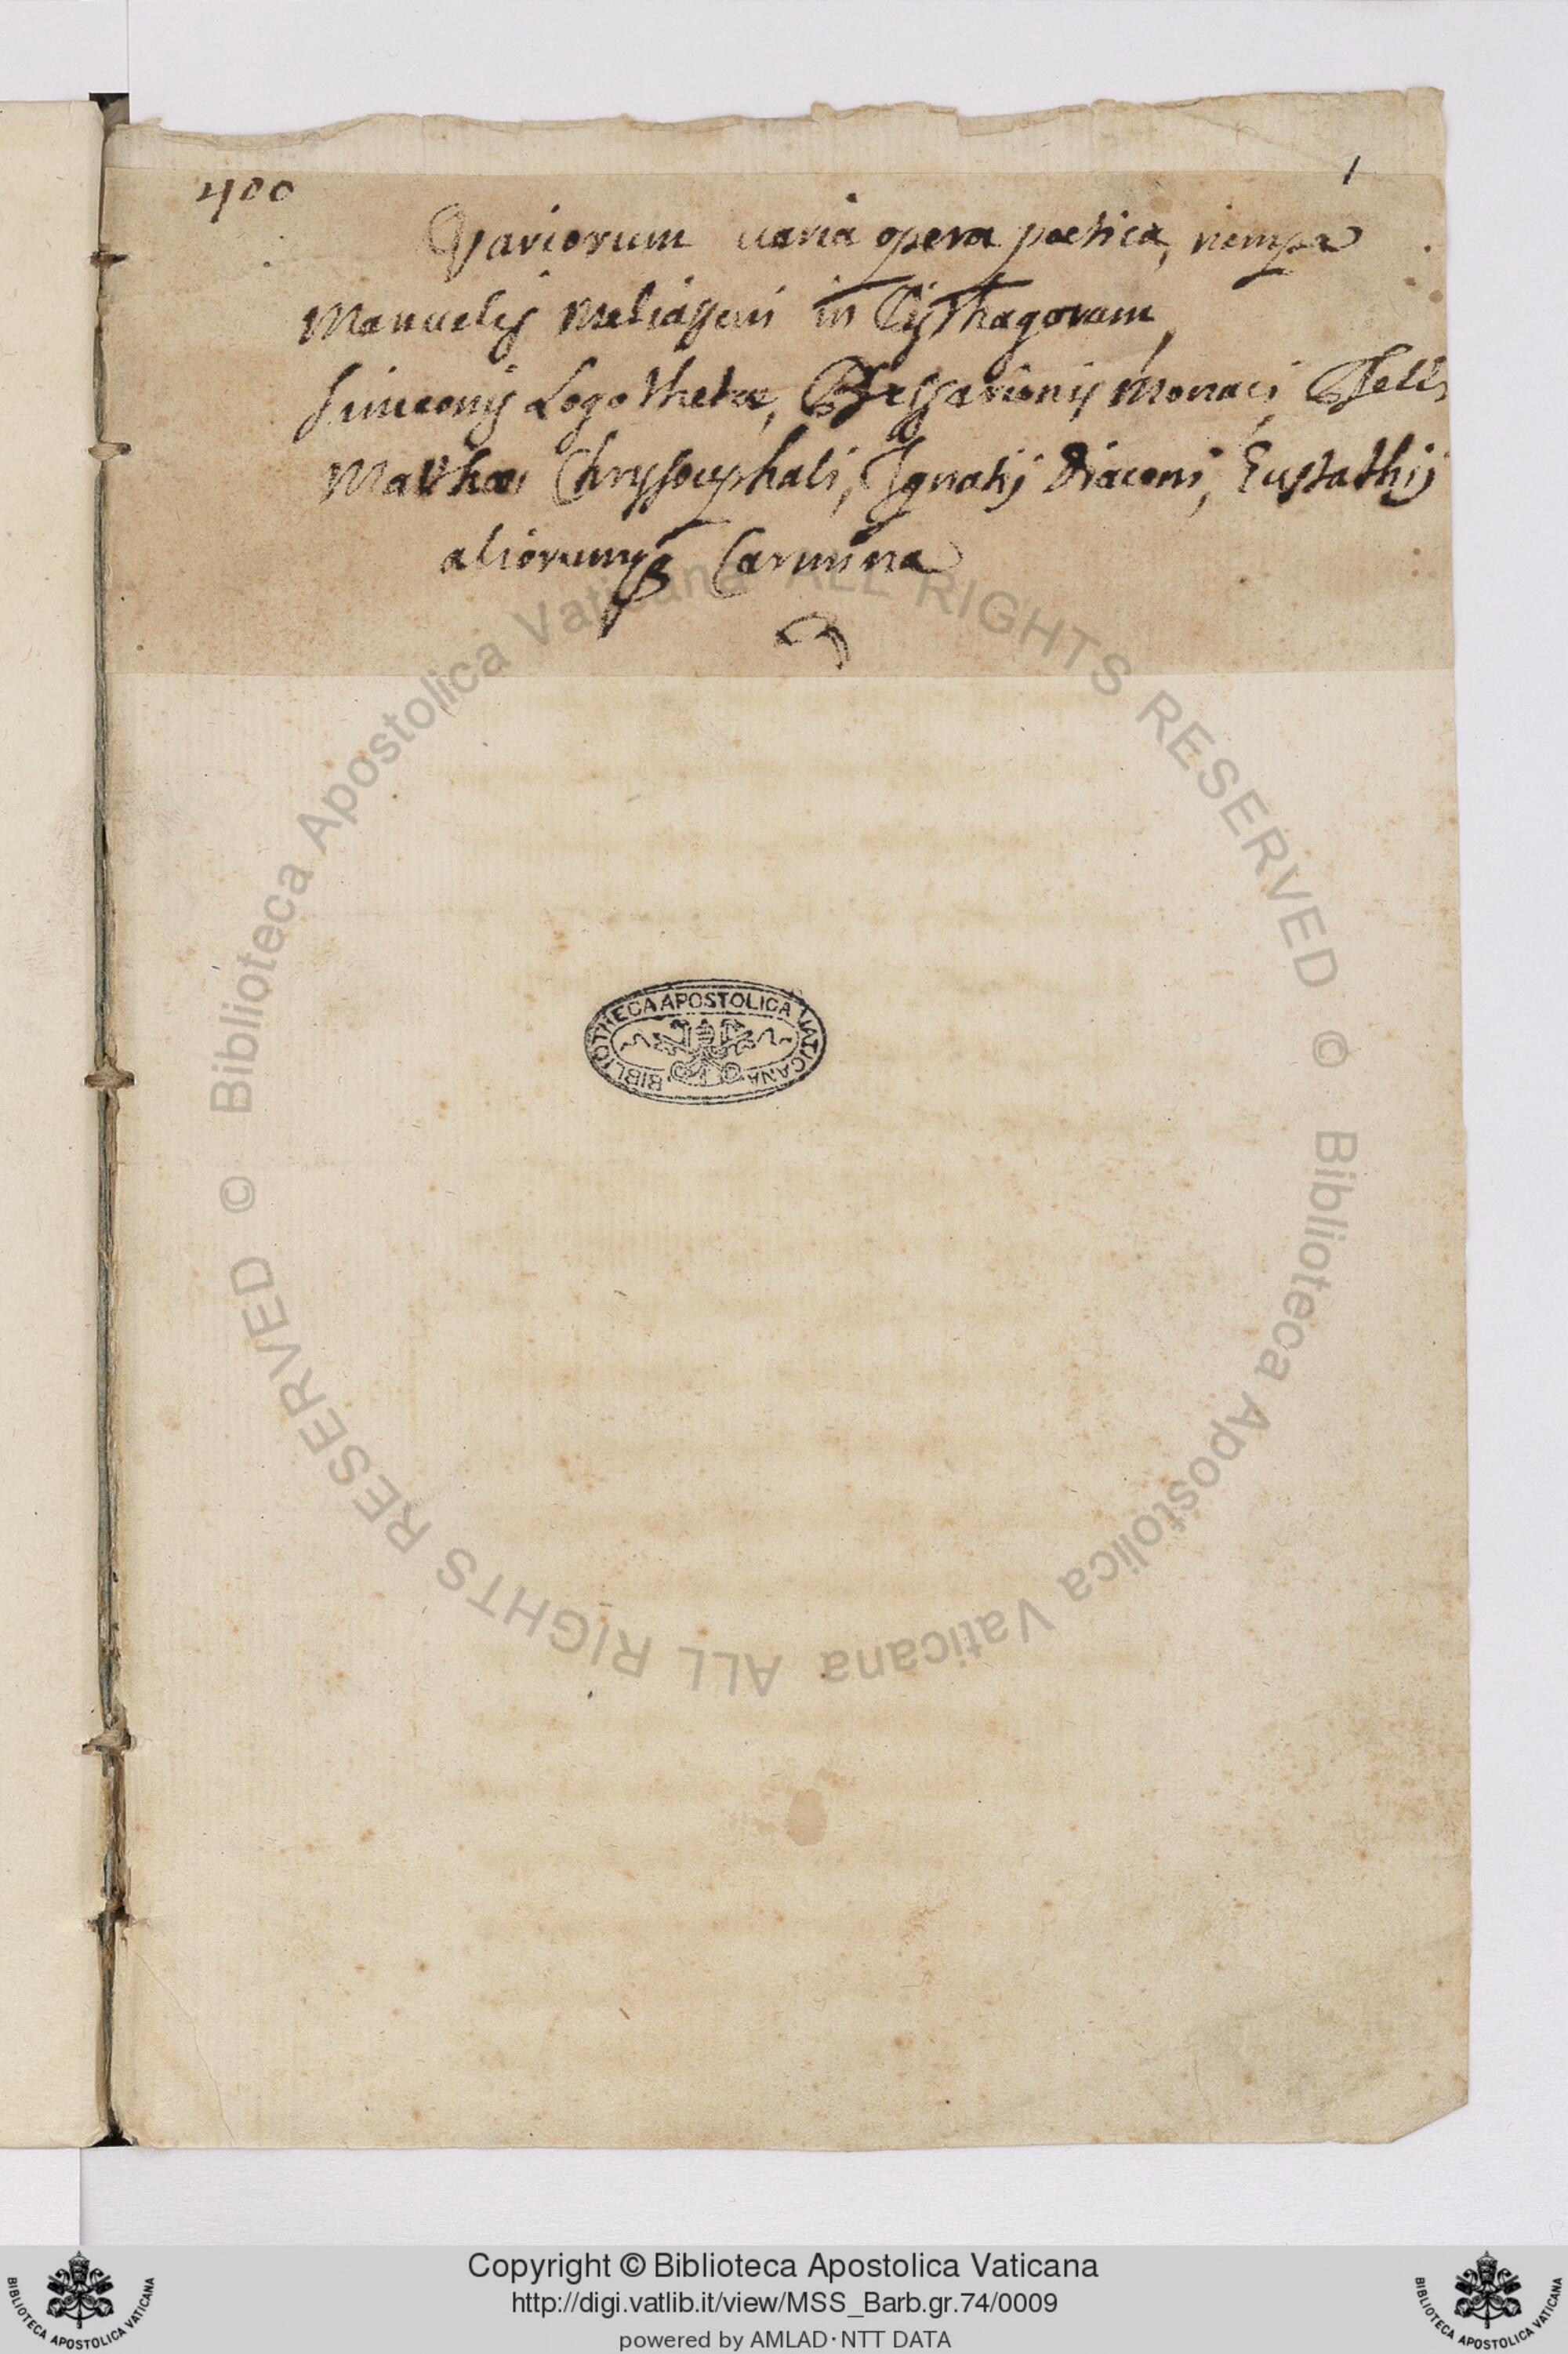 400
1
Variorum uaria opera poetica, nempe
Manuelis Melisseni in Pythagoram,
Simeonis Logothetæ, Bessarionis Monaci, Pselli
Mathæi Chrysocephali, Ignatij Diaconi, Eustathij
aliorumq Carmina
BIBLIOTHECA APOSTOLICA VATICANA
© Biblioteca Apostolica Vaticana ALL RIGHTS RESERVED
© Biblioteca Apostolica Vaticana ALL RIGHTS RESERVED
Copyright © Biblioteca Apostolica Vaticana
http://digi.vatlib.it/view/MSS_Barb.gr.74/0009
powered by AMLAD·NTT DATA
BIBLIOTECA APOSTOLICA VATICANA
BIBLIOTECA APOSTOLICA VATICANA